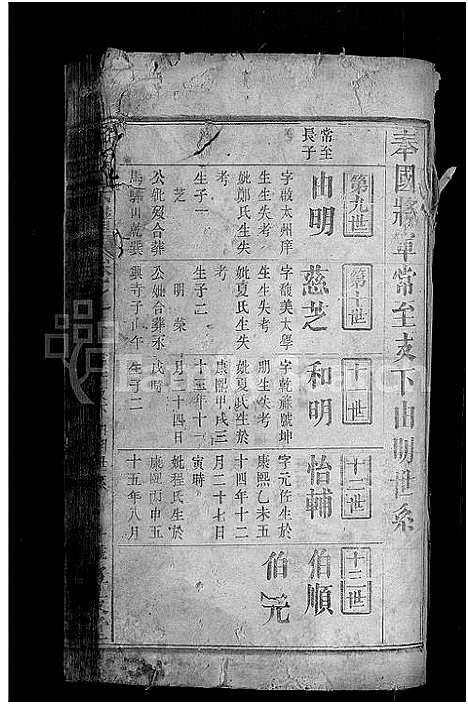 奉國將軍常至支下由明世系
第九世
第十世
十一世
十二世
十三世
常至
長子
由明
慈芝
和明
怡輔
伯順
考
字啟太州庠
生生失考
妣鄭氏生失
考
生子一
芝
公妣歿合葬
字馥美太學
生生失考
妣夏氏生失
考
生子二
明 榮
公妣合葬永
字乾菻號坤
朋生失考
妣夏氏生於
康熙甲戌三
十三年十一
月二十四日
戌時
生子二
字元佐生於
康熙乙未五
十四年十二
月二十七日
寅時
妣程氏生於
康熙丙申五
十五年八月
伯元